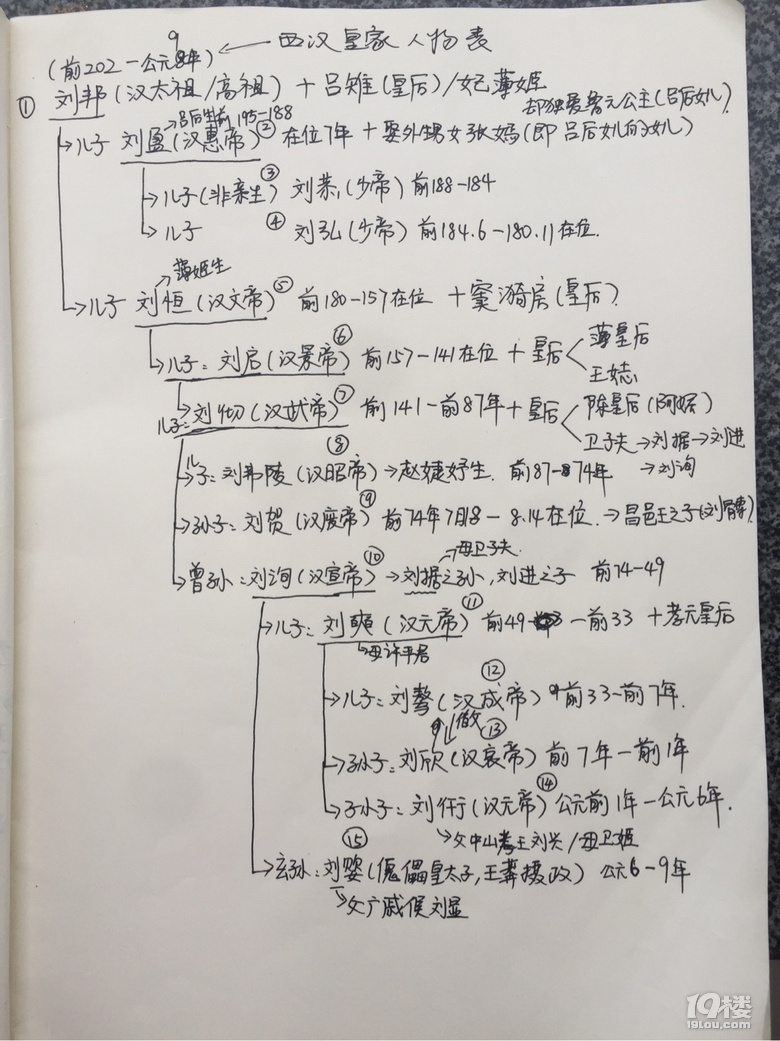 西汉皇家人物表
(前202一公元8年) 9
① 刘邦(汉太祖/高祖)+吕雉(皇后)/妃薄姬
却独爱鲁元公主(吕后女儿)
吕后生前195-188
儿子 刘盈(汉惠帝)② 在位7年+娶外甥女张嫣(即吕后女儿的女儿)
儿子(非亲生)③ 刘恭(少帝) 前188-184
儿子 ④ 刘弘(少帝) 前184.6-180.11在位.
薄姬生
儿子 刘恒(汉文帝)⑤ 前180-157在位 +窦漪房(皇后)
儿子:刘启(汉景帝)⑥ 前157-141在位+皇后 薄皇后
王娡
儿子:刘彻(汉武帝)⑦ 前141-前87年+皇后 陈皇后(阿娇)
卫子夫→刘据→刘进
→刘洵
儿子:刘弗陵(汉昭帝)⑧→赵婕妤生. 前87-74年
孙子:刘贺(汉废帝)⑨ 前74年7月18-8.14在位.→昌邑王之子(刘髆)
母卫子夫.
曾孙:刘洵(汉宣帝)⑩→刘据之孙,刘进之子 前74-49
儿子:刘奭(汉元帝)⑪ 前49-前33 +孝元皇后
母许平君
儿子:刘骜(汉成帝)⑫ 前33-前7年.
孙子:刘欣(汉哀帝)⑬ 前7年-前1年
孙子:刘衎(汉元帝)⑭公元前1年-公元6年.
父中山孝王刘兴/母卫姬
玄孙:刘婴⑮(傀儡皇太子,王莽摄政) 公元6-9年
父广戚侯刘显
19楼
19lou.com